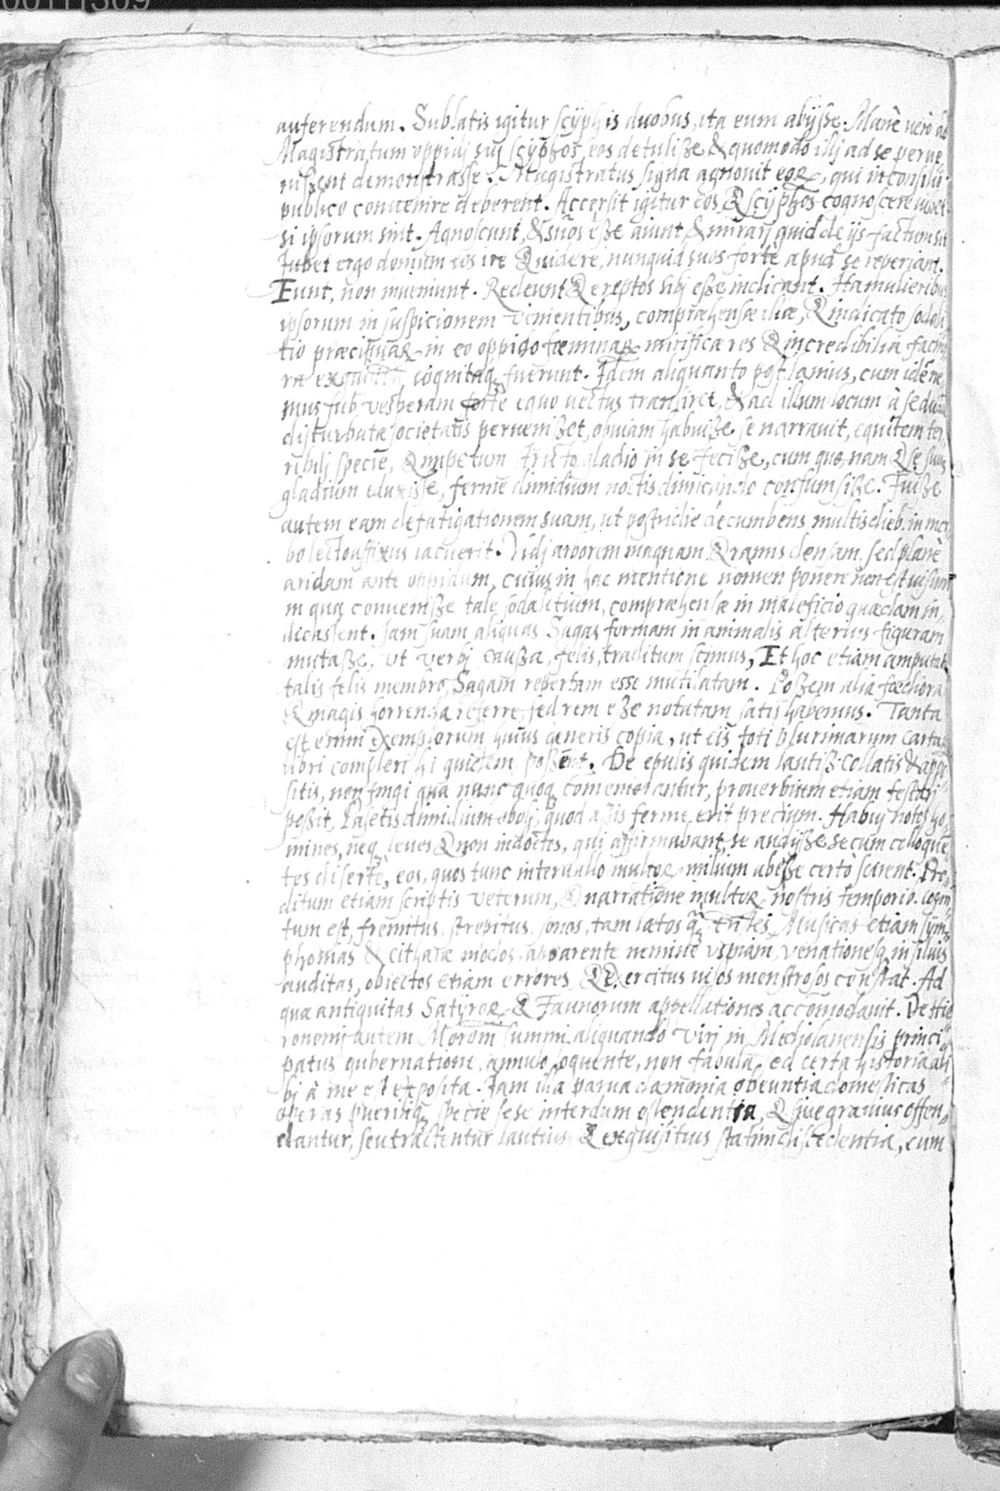 00111309
auferendum. Sublatis igitur scÿphis duobus, ita eum abijsse. Manè verò ad
Magistratum oppidj suj scÿphos eos detulisse & quomodo illj ad se perve
nissent demonstrasse. Magistratus signa agnovit eor, qui in consilio
publico convenire deberent. Accersit igitur eos & scÿphos cognoscere iubet
si ipsorum sint. Agnoscunt, & suos esse aiunt, & mirarj quid de ijs factum sit
Jubet ergo domum eos ire & videre, nunquid suos forte apud se reperiant.
Eunt, non inveniunt. Redeunt & ereptos sibj esse indicant. Ita mulieribus
ipsorum in suspicionem venientibus, compræhensæ illæ, & indicato sodali
tio præcipuar in eo oppido fœminar mirificæ res & incredibilia facino
ra cognitaq fuerunt. Idem aliquanto post lanius, cum idem ne
mus sub vesperam forte equo vectus transiret, & ad illum locum à se
disturbatæ societatis pervenisset, obviam habuisse se narravit, equitem ter
ribilj specie, & impetum stricto gladio in se fecisse, cum quo nam & se suum
gladium eduxisse, ferme dimidium noctis dimicando consumsisse. Fuisse
autem eam defatigationem suam, ut postridie decumbens multis dieb. in mor
bo lecto affixus iacuerit. Vidj arborem magnam & ramis densam, sed planè
aridam ante oppidum, cuius in hac mentione nomen ponere non est visum
in qua convenisse tale sodalitium, compræhensæ in maleficio quædam in,
dicassent. Jam suam aliquas Sagas formam in animalis alterius figuram
mutasse, ut verbj caussa, felis, traditum scimus, Et hoc etiam amputato
talis felis membro, Sagam repertam esse mutilatam. Possem alia fœdiora
& magis horrenda referre, sed rem esse notatam satis habemus. Tanta
est enim exemplorum huius generis copia, ut eis toti plurimarum carta
libri complerj quidem possent. De epulis quidem lautiss. collatis & appo
sitis, non fingi quæ nunc quoq comemorantur, proverbium etiam testari
possit, Lasetis dimidium obolj, quod assis ferme erit precium. Habuj notos ho
mines, neq leves & non indoctos, quj affirmabant, se audijsse secum colloquen
tes disertè, eos, quos tunc intervallo multor milium abesse certò scirent. Pro,
ditum etiam scriptis veterum, & narratione multor nostris temporib. cogni
tum est, fremitus, strepitus, sonos, tam lætos q tristes, Musicas etiam sÿm
phonias & citharæ modos, apparente nemine uspiam, venationesq in siluis
auditas, obiectos etiam errores & exercitus visos monstrosos constat. Ad
quæ antiquitas Satÿror & Faunorum appellationes accomodavit. De Hie
ronomj autem Moroni summi aliquando virj in Mediolanensis princi
patus gubernatione, annulo loquente, non fabula, sed certa historia ali
bj à me est exposita. Jam illa parva dæmonia obeuntia domesticas
operas puerilíq specie sese interdum ostendentia, & sive gravius offen,
dantur, seu tractentur lautius & exquisitius statim discedentia, cum